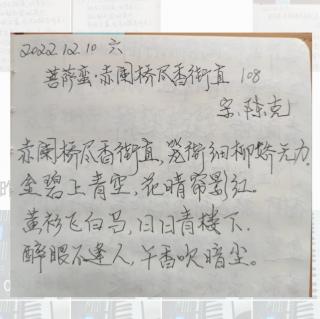 2022.12.10 六
菩萨蛮·赤阑桥尽香街直 108
宋.陈克
赤阑桥尽香街直,笼街细柳娇无力.
金碧上青空,花晴帘影红。
黄衫飞白马,日日青楼下.
醉眼不逢人,午香吹暗尘。